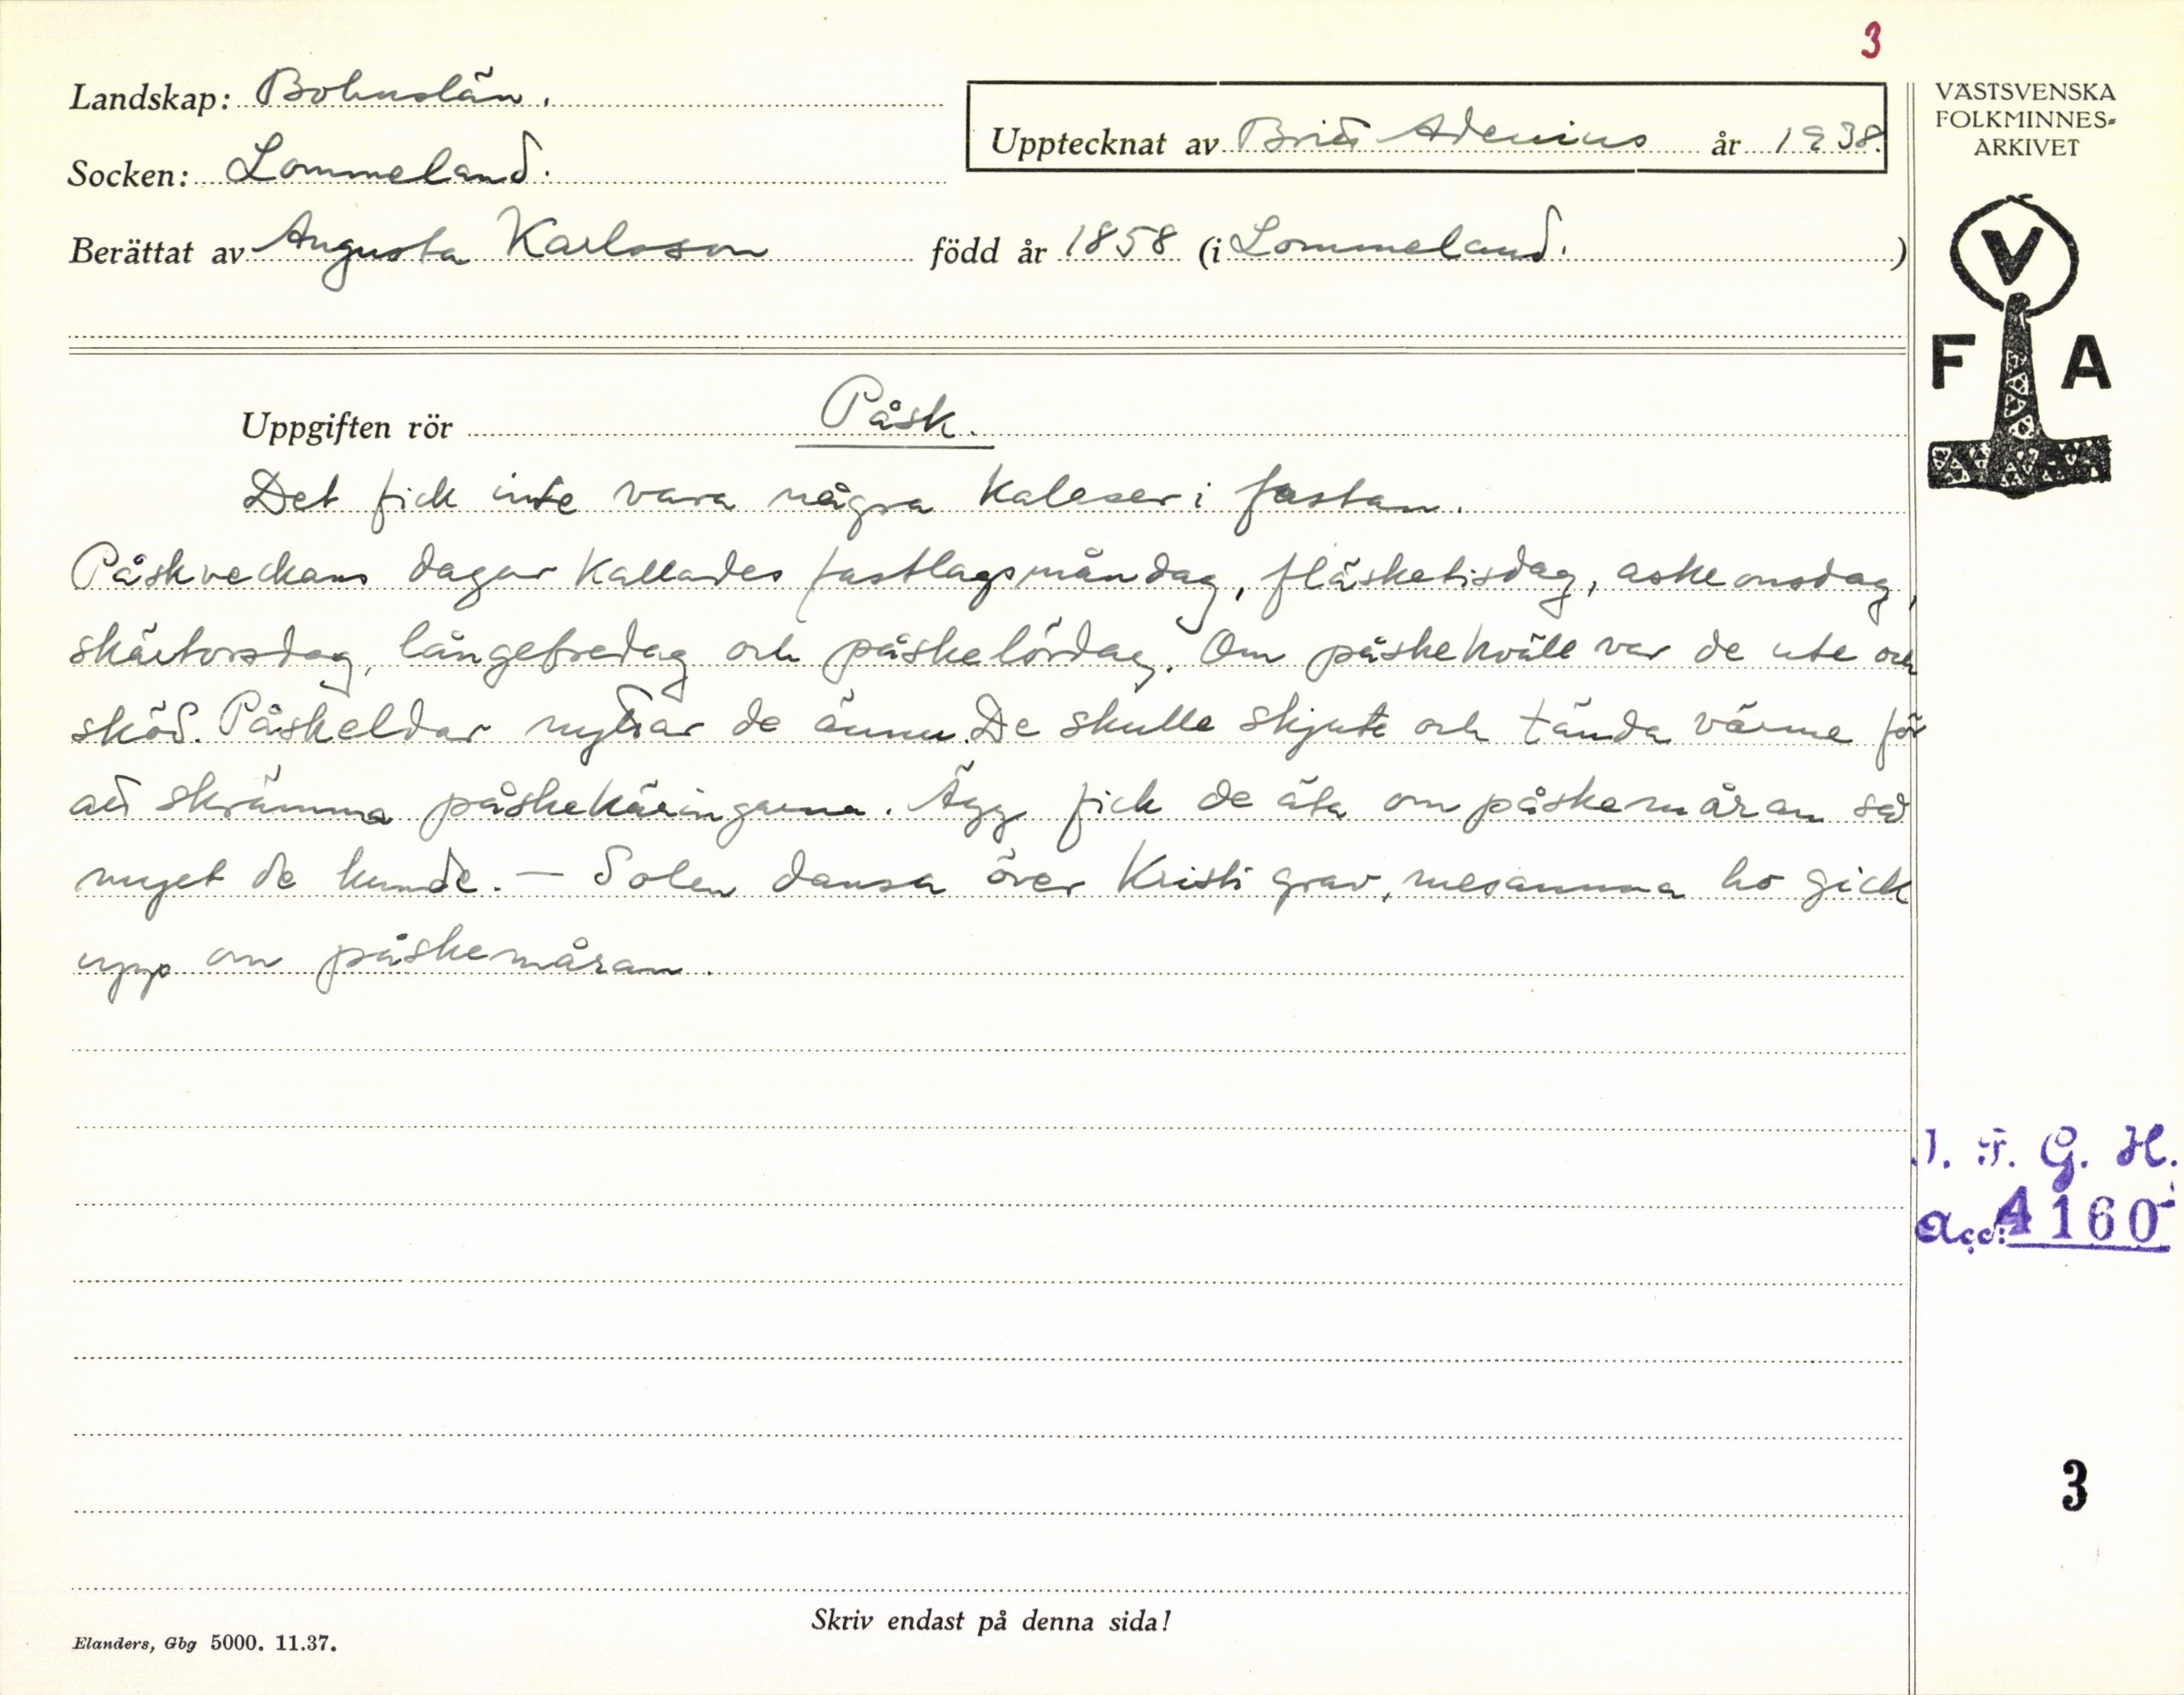 3
Landskap: Bohuslän.
Upptecknat av Britt Adenius år 1938.
Socken: Lommeland.
Berättat av Augusta Karlsson född år 1858 (i Lommeland.)
VÄSTSVENSKA
FOLKMINNES-
ARKIVET
V
F A
Uppgiften rör Påsk.
Det fick inte vara några kalaser i fastan.
Påskveckans dagar kallades fastlagsmåndag, fläsketisdag, askeonsdag,
skärtorsdag, långefredag och påskelördag. Om påskekväll var de ute och
sköd. Påskeldar nyttar de ännu. De skulle skjuta och tända värme för
att skrämma påskekäringarna. Ägg fick de äta om påskemåran så
myet de kunde. — Solen dansa över Kristi grav, mesamma ho gick
upp om påskemåran.
I. F. G. H.
acc. 4160
3
Skriv endast på denna sida!
Elanders, Gbg 5000. 11.37.